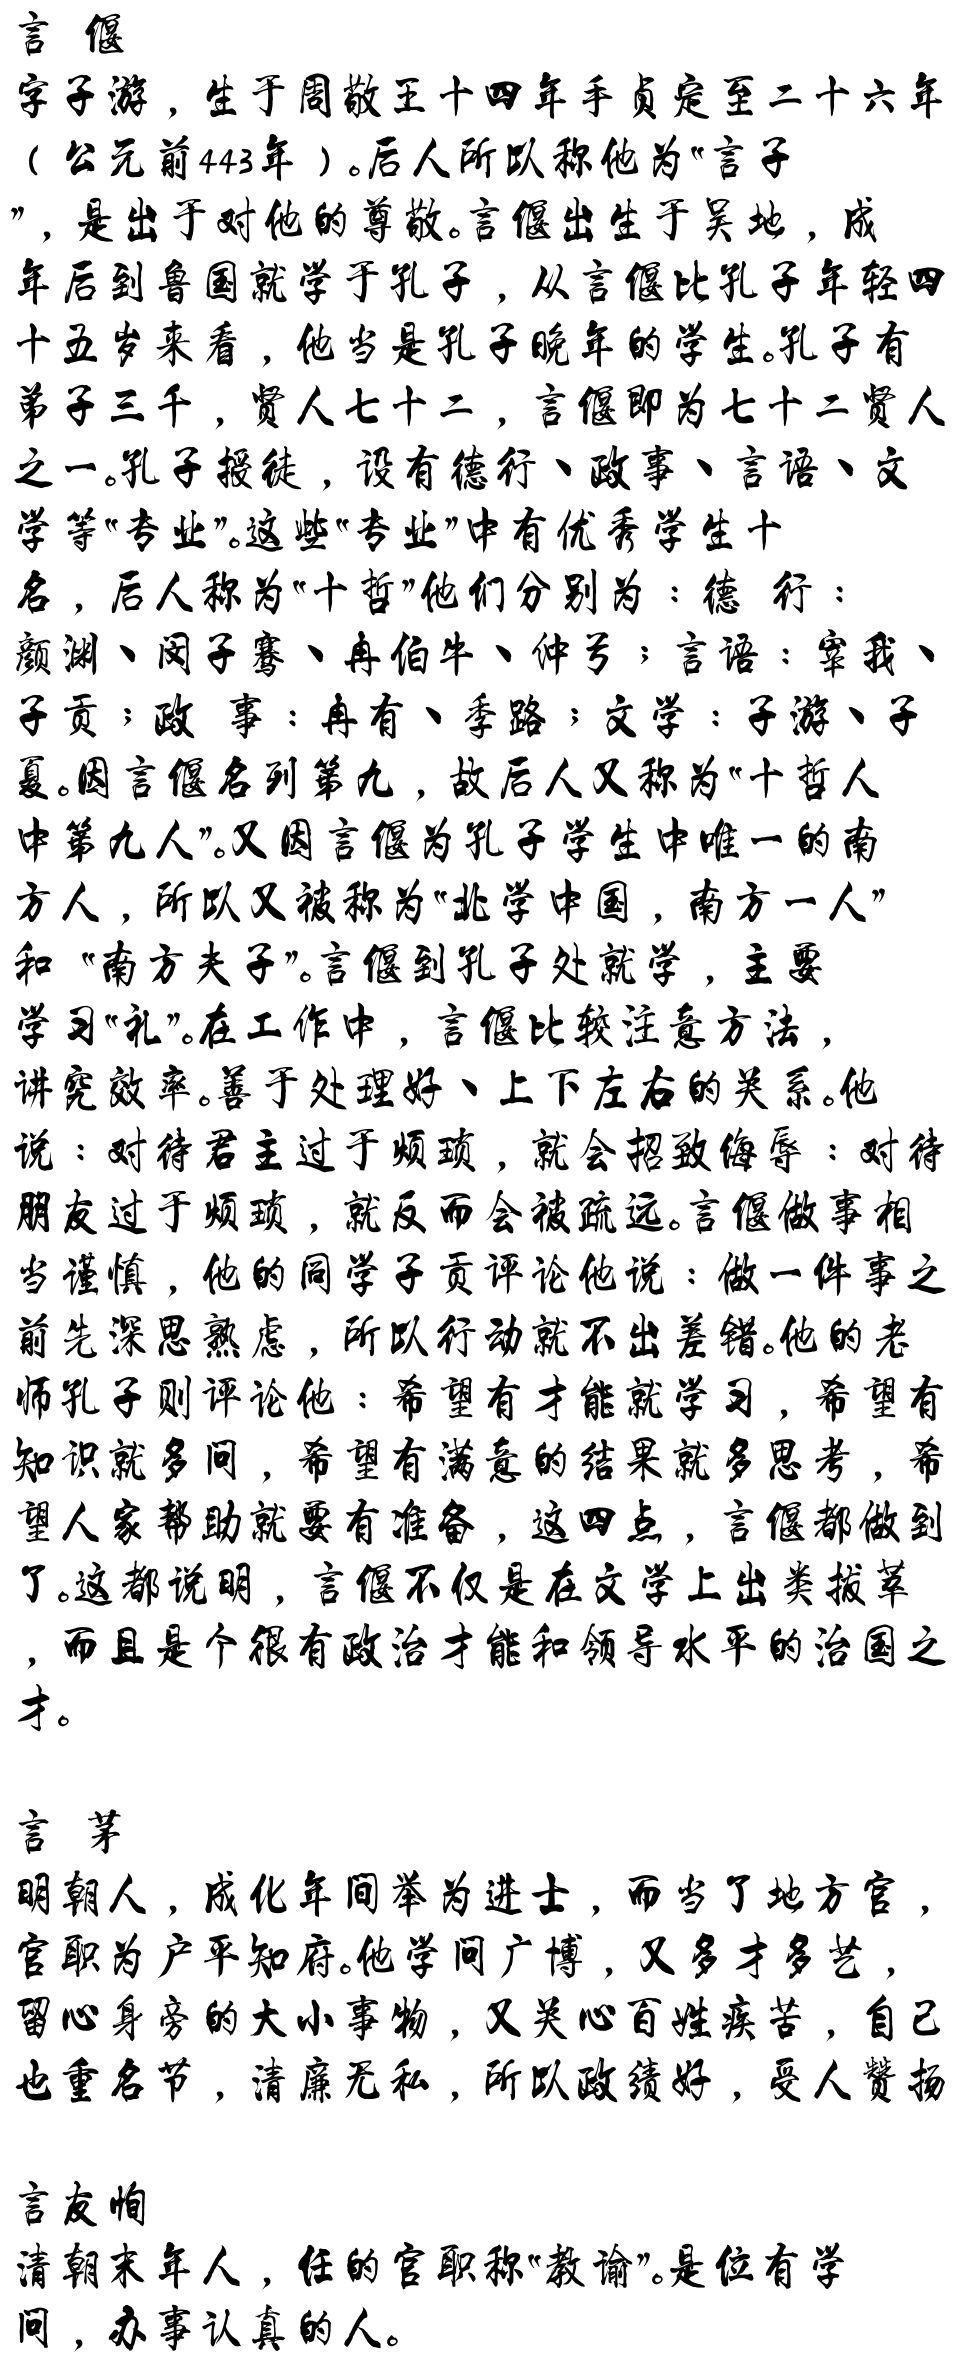 言 偃
字子游，生于周敬王十四年手贞定至二十六年
（公元前443年）。后人所以称他为“言子
”，是出于对他的尊敬。言偃出生于吴地，成
年后到鲁国就学于孔子，从言偃比孔子年轻四
十五岁来看，他当是孔子晚年的学生。孔子有
弟子三千，贤人七十二，言偃即为七十二贤人
之一。孔子授徒，设有德行、政事、言语、文
学等“专业”。这些“专业”中有优秀学生十
名，后人称为“十哲”他们分别为：德 行：
颜渊、闵子骞、冉伯牛、仲弓；言语：宰我、
子贡；政 事：冉有、季路；文学：子游、子
夏。因言偃名列第九，故后人又称为“十哲人
中第九人”。又因言偃为孔子学生中唯一的南
方人，所以又被称为“北学中国，南方一人”
和“南方夫子”。言偃到孔子处就学，主要
学习“礼”。在工作中，言偃比较注意方法，
讲究效率。善于处理好、上下左右的关系。他
说：对待君主过于烦琐，就会招致侮辱：对待
朋友过于烦琐，就反而会被疏远。言偃做事相
当谨慎，他的同学子贡评论他说：做一件事之
前先深思熟虑，所以行动就不出差错。他的老
师孔子则评论他：希望有才能就学习，希望有
知识就多问，希望有满意的结果就多思考，希
望人家帮助就要有准备，这四点，言偃都做到
了。这都说明，言偃不仅是在文学上出类拔萃
，而且是个很有政治才能和领导水平的治国之
才。
言 茅
明朝人，成化年间举为进士，而当了地方官，
官职为户平知府。他学问广博，又多才多艺，
留心身旁的大小事物，又关心百姓疾苦，自己
也重名节，清廉无私，所以政绩好，受人赞扬
言友恂
清朝末年人，任的官职称“教谕”。是位有学
问，办事认真的人。